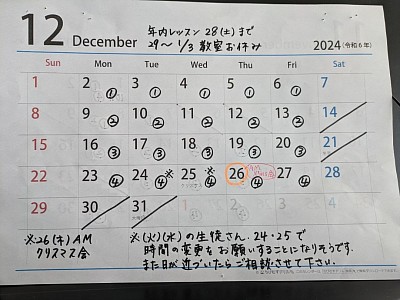 12 December
年内レッスン 28(土)まで
29〜1/3 教室お休み
2024 (令和6年)
Sun Mon Tue Wed Thu Fri Sat
1 2① 3① 4① 5① 6① 7
8 9② 10② 11② 12② 13② 14
15 16③ 17③ 18③ 19③ 20③ 21
22 23④ 24※④ 25※④ 26④ 27④ 28
29 30 31
※26(木)AM
クリスマス会
※(火)(水)の生徒さん、24・25で
時間の変更をお願いすることになりそうです。
また日が近づいたらご相談させて下さい。